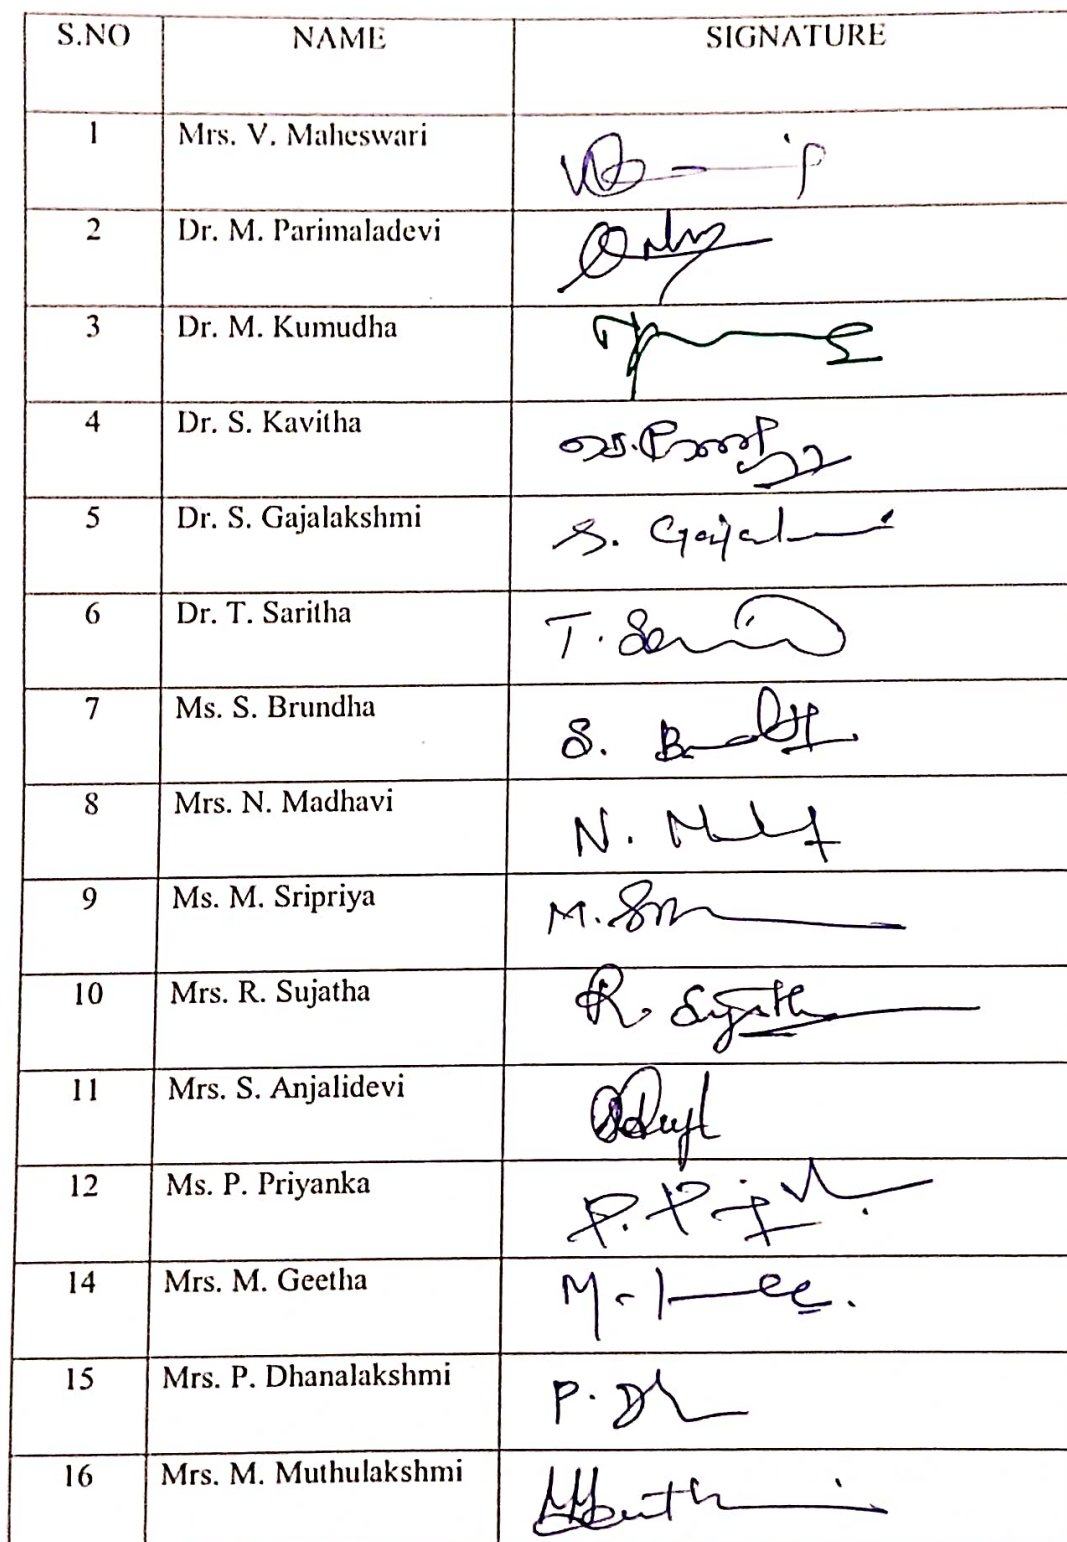 S.NO NAME SIGNATURE
1 Mrs. V. Maheswari
2 Dr. M. Parimaladevi
3 Dr. M. Kumudha
4 Dr. S. Kavitha
5 Dr. S. Gajalakshmi S.
6 Dr. T. Saritha T.
7 Ms. S. Brundha S.
8 Mrs. N. Madhavi N.
9 Ms. M. Sripriya M.
10 Mrs. R. Sujatha R. Sujatha
11 Mrs. S. Anjalidevi
12 Ms. P. Priyanka P.
14 Mrs. M. Geetha
15 Mrs. P. Dhanalakshmi P.
16 Mrs. M. Muthulakshmi